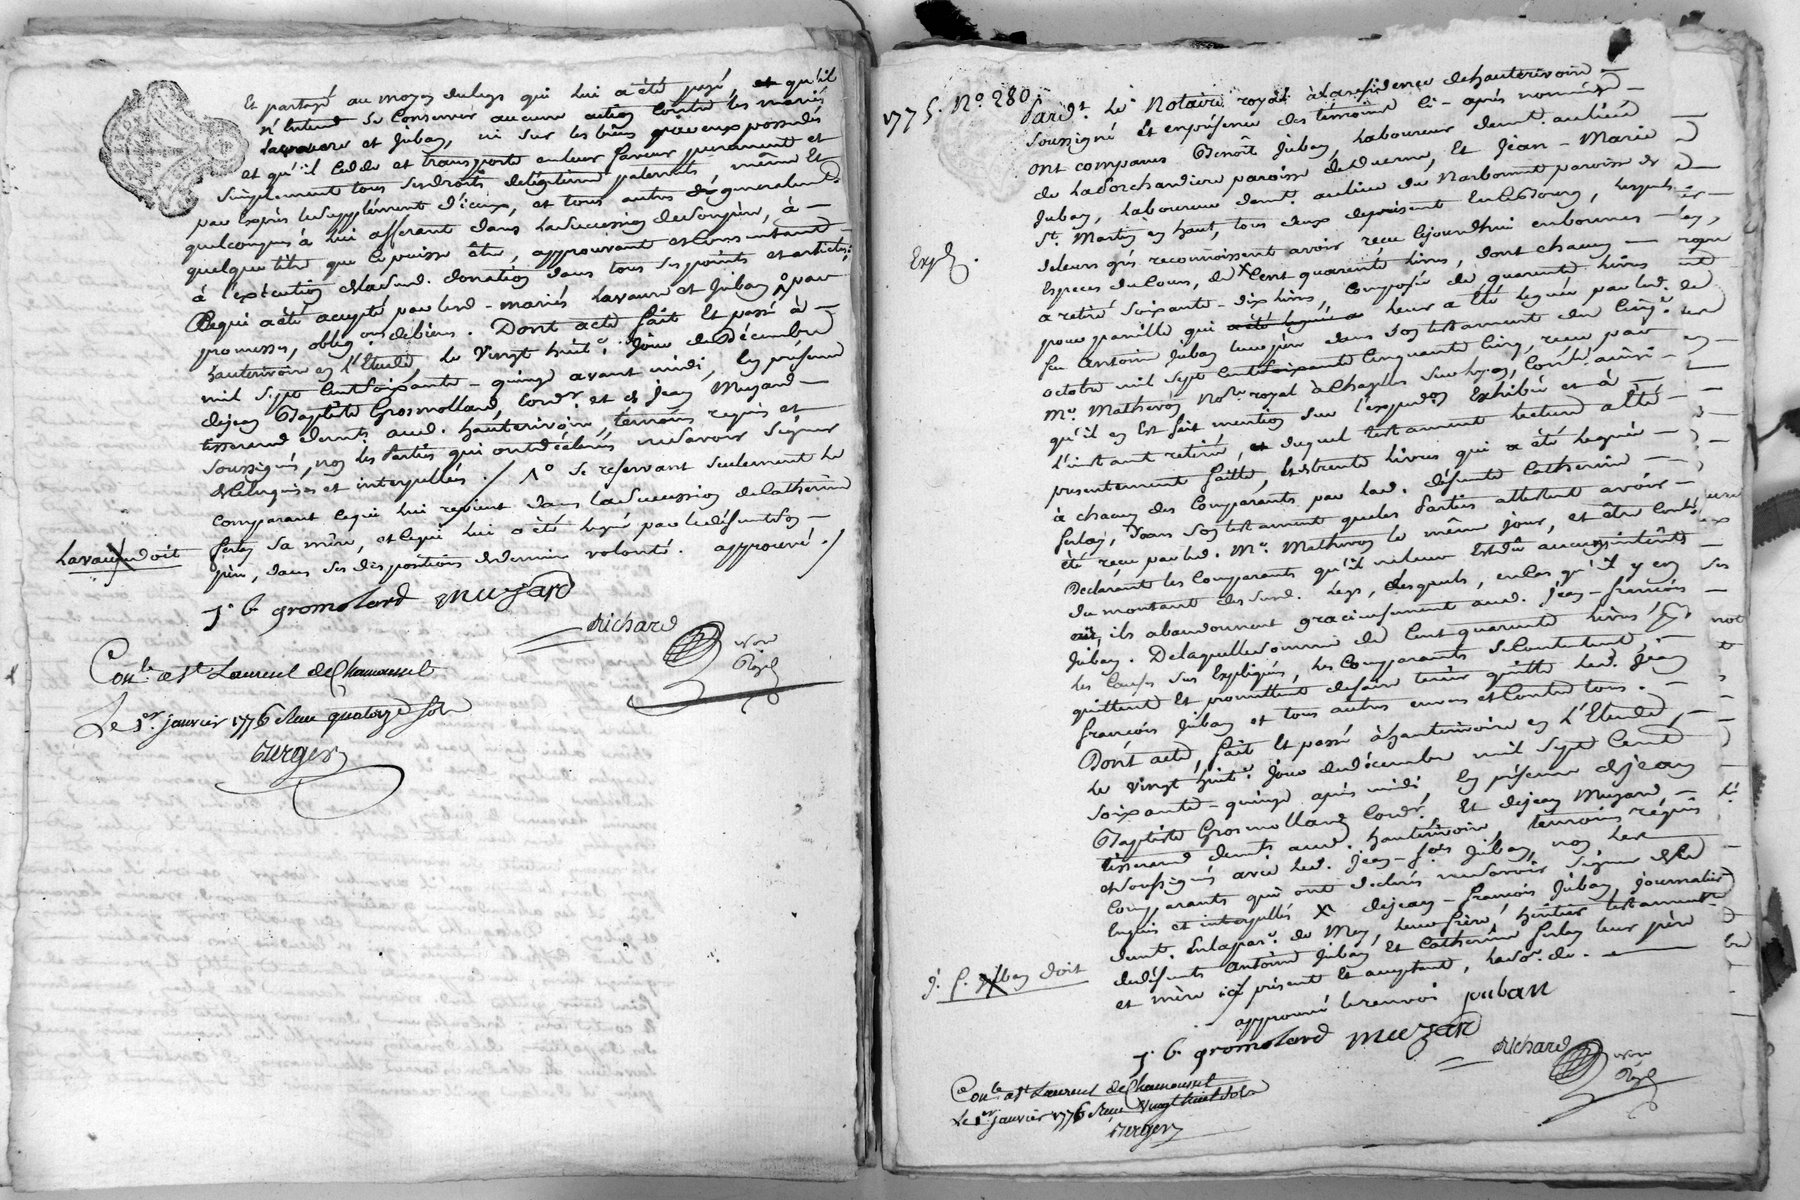 Et partagé au moyen du legs qui lui a été payé, et qu'il
n'entend se Conserver aucune action Contre les mariés
Lavaure et Juban, ni sur les biens qu'iceux possedés
et qu'il Cedde et transporte en leur faveur purement et
Simplement tous ses droits de légitime paternels, même Et
par Exprès le Supplément d'iceux, et tous autres generalemt.
quelconques à lui afferant dans la Succession de son père, à
quelque titre que ce puisse être, approuvant et Consentant
à l'exécution de la susd. donation dans tous ses points et articles;
Ce qui a été accepté par lesd. mariés Lavaure et Juban, par
promesses, obligon. de biens. Dont acte fait Et passé à
hauterivoire en l'Etude, le Vingt huite. jour de Décembre
mil Sept Cent Soixante-quinze avant midi, En présence
de jean Baptiste Grosmolland, Cordr. et de Jean Muzard
tisserand demts. aud. hauterivoire, témoins requis et
Soussignés, non les Parties qui ont déclaré ne savoir signer
de Ce enquises et interpellées. / 1o Se reservant seulement le
Comparant ce qui lui revient dans la Succession de Catherine
ferlay Sa mère, et ce qui lui a été legué par le défunt son
père, dans ses dispositions de dernière volonté. approuvé. /
Lavaure doit
J. b. gromolard muzard
Richard
nore
Royal
Conlé. a St Laurent de Chamousset
Le 1er. janvier 1776 Reçu quatorze sols
Berger
1775. No. 280
Pardt. Le Notaire royal à la residence de hauterivoire
Soussigné Et en présence des témoins ci-après nommés
ont comparus Benoît Juban, Laboureur demt. au lieu
de La Sorchandiere paroisse de Duerne, Et Jean-Marie
Juban, Laboureur demt. au lieu du Narbonnet paroisse de
St. Martin en haut, tous deux deprésent En ce Bourg, lesquels
de leurs grés reconnoissent avoir reçu Cejourd'hui en bonnes
Especes de Cours, de x Cent quarante livres, dont chacun
a retiré Soixante-dix livres, Composée de quarante livres
pour pareille qui a été leguée a leur a été leguée par led.
feu Antoine Juban leur père dans son testament du Cinqe.
octobre mil Sept Cent Soixante Cinquante Cinq, reçu par
Me. Matheron Nore. royal à Chazelles sur Lyon, Conlé. ainsi
qu'il en Est fait mention sur l'expedon. Exhibée et à
l'instant retirée, et duquel testament lecture a été
presentement faitte, Et de trente livres qui a été leguée
à chacun des Comparants par lad. défunte Catherine
ferlay, dans son testament que les Parties attestent avoir
été reçu par led. Me. Matheron le même jour, et être Conlé.
Declarant les Comparants qu'il ne leur Est dû aucuns intérêts
du montant des susd. Legs, desquels, en cas qu'il y en
eût, ils abandonnent gracieusement aud. Jean-francois
Juban. De laquelle somme de Cent quarante livres
les Causes sus Expliqués, les Comparants se Contentent,
quittent Et promettent de faire tenir quitte led. Jean
francois Juban et tous autres envers et Contre tous.
Dont acte, fait Et passé à hauterivoire en l'Etude,
le Vingt huite. jour de Décembre mil Sept Cent
Soixante-quinze après midi, En présence de jean
Baptiste Grosmolland Cordr. Et de jean Muzard
tisserand demts. aud. hauterivoire témoins réquis
et soussignés avec led. Jean-fois Juban, non les
Comparants qui ont declaré ne savoir signer de Ce
Enquis et interpellés x de jean-francois Juban, journalier
demt. En la parse. de Meys, leur frère, héritier testamentre
de défunts Antoine Juban Et Catherine ferlay leur père
et mère ici présent Et acceptant, la som. de.
approuvé le renvoi juban
J. f. Juban doit
Expé.
J. b. gromolard muzard
Richard
nore
Royal
Conlé. a St Laurent de Chamousset
Le 1er janvier 1776 Reçu Vingt huit sols
Berger